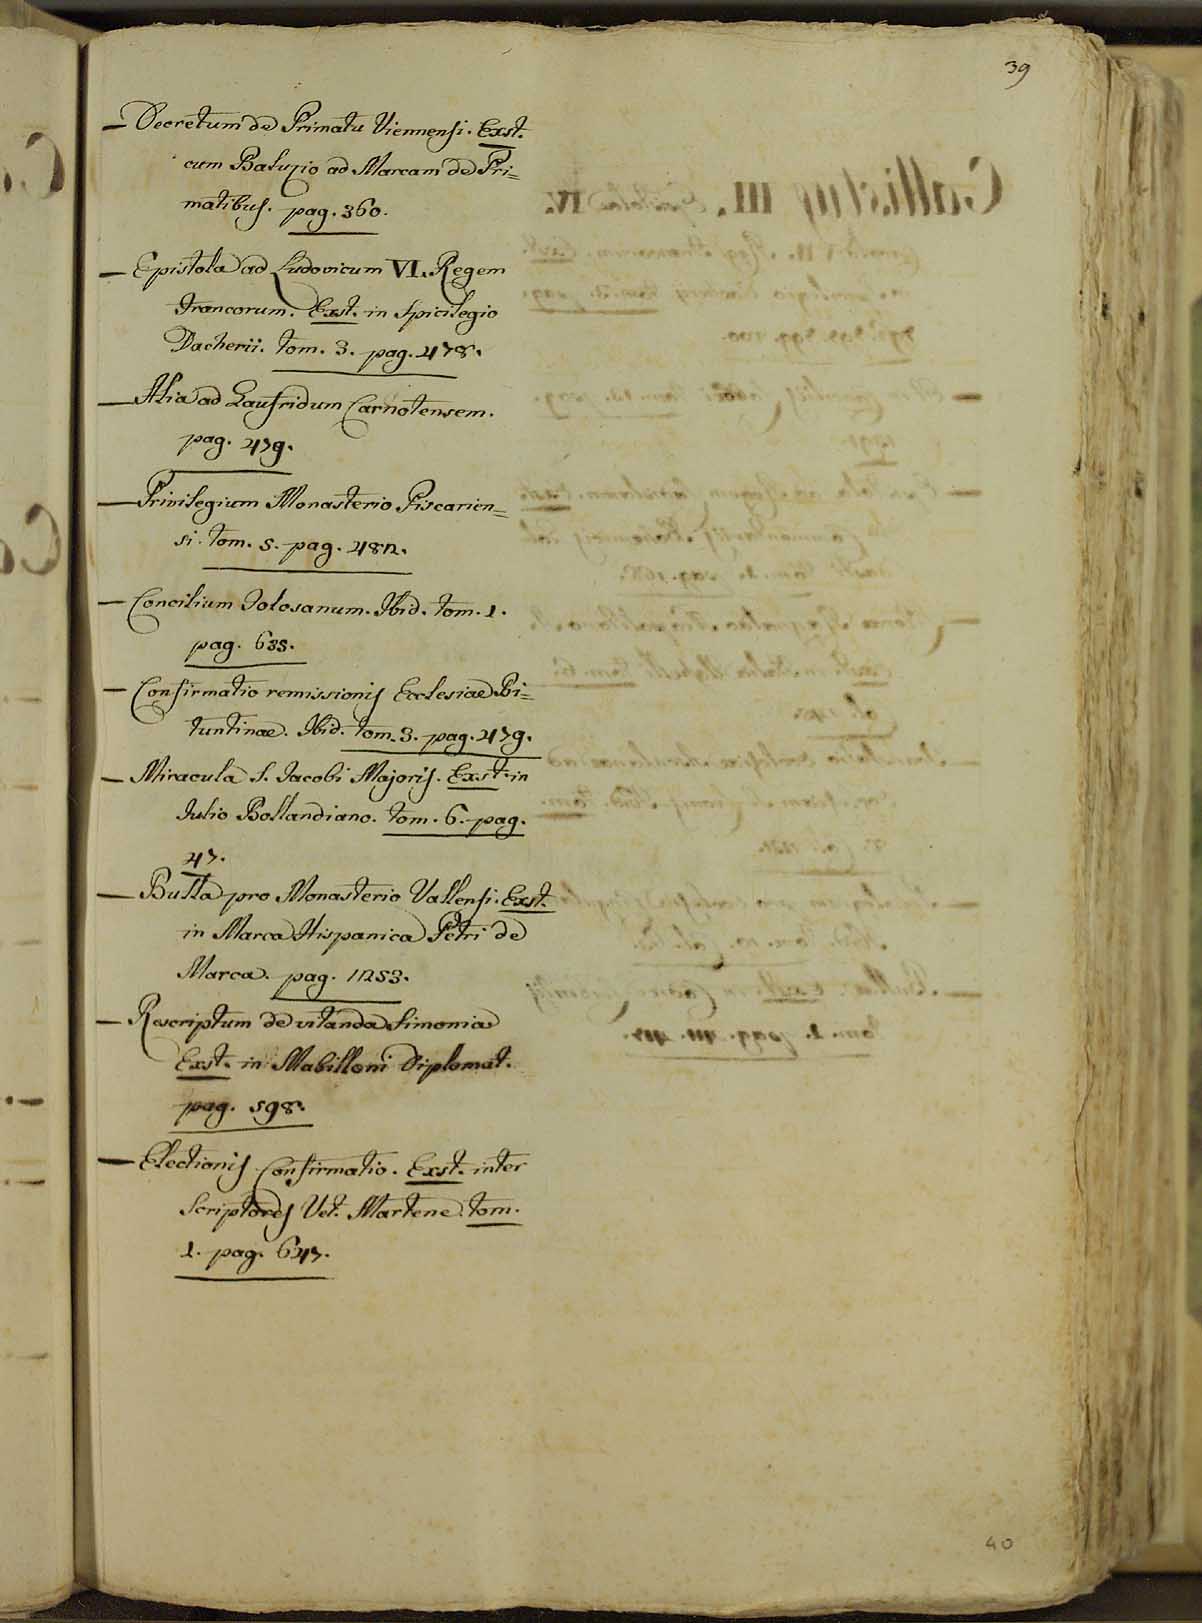 39
— Decretum de Primatu Viennensi. Exst.
cum Baluzio ad Marcam de Pri=
matibus. pag. 360.
— Epistola ad Ludovicum VI. Regem
Francorum. Exst. in Spicilegio
Dacherii. tom. 3. pag. 478.
— Alia ad Gaufridum Carnotensem.
pag. 479.
— Privilegium Monasterio Piscarien=
si. tom. 5. pag. 482.
— Concilium Tolosanum. Ibid. tom. 1.
pag. 635.
— Confirmatio remissionis Ecclesiae Bi=
tuntinae. Ibid. tom. 3. pag. 479.
— Miracula S. Jacobi Majoris. Exst. in
Julio Bollandiano. tom. 6. pag.
47.
— Bulla pro Monasterio Vallensi. Exst.
in Marca Hispanica Petri de
Marca. pag. 1253.
— Rescriptum de vitanda Simonia
Exst. in Mabilloni Diplomat.
pag. 598.
— Electionis Confirmatio. Exst. inter
Scriptores Vet. Martene. tom.
1. pag. 647.
40